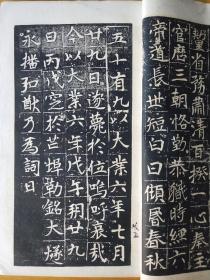 望省務肅清百揆一心奉
官歷三朝恪勤恭職時經六
帝道長世短白日傾晷春秋
五十有九以大業六年七月
廿九日遘薨於位嗚呼哀哉
今以大業六年戊午朔廿九
日丙戌窆於芒埠勒銘天燧
永播和猷乃為詞曰